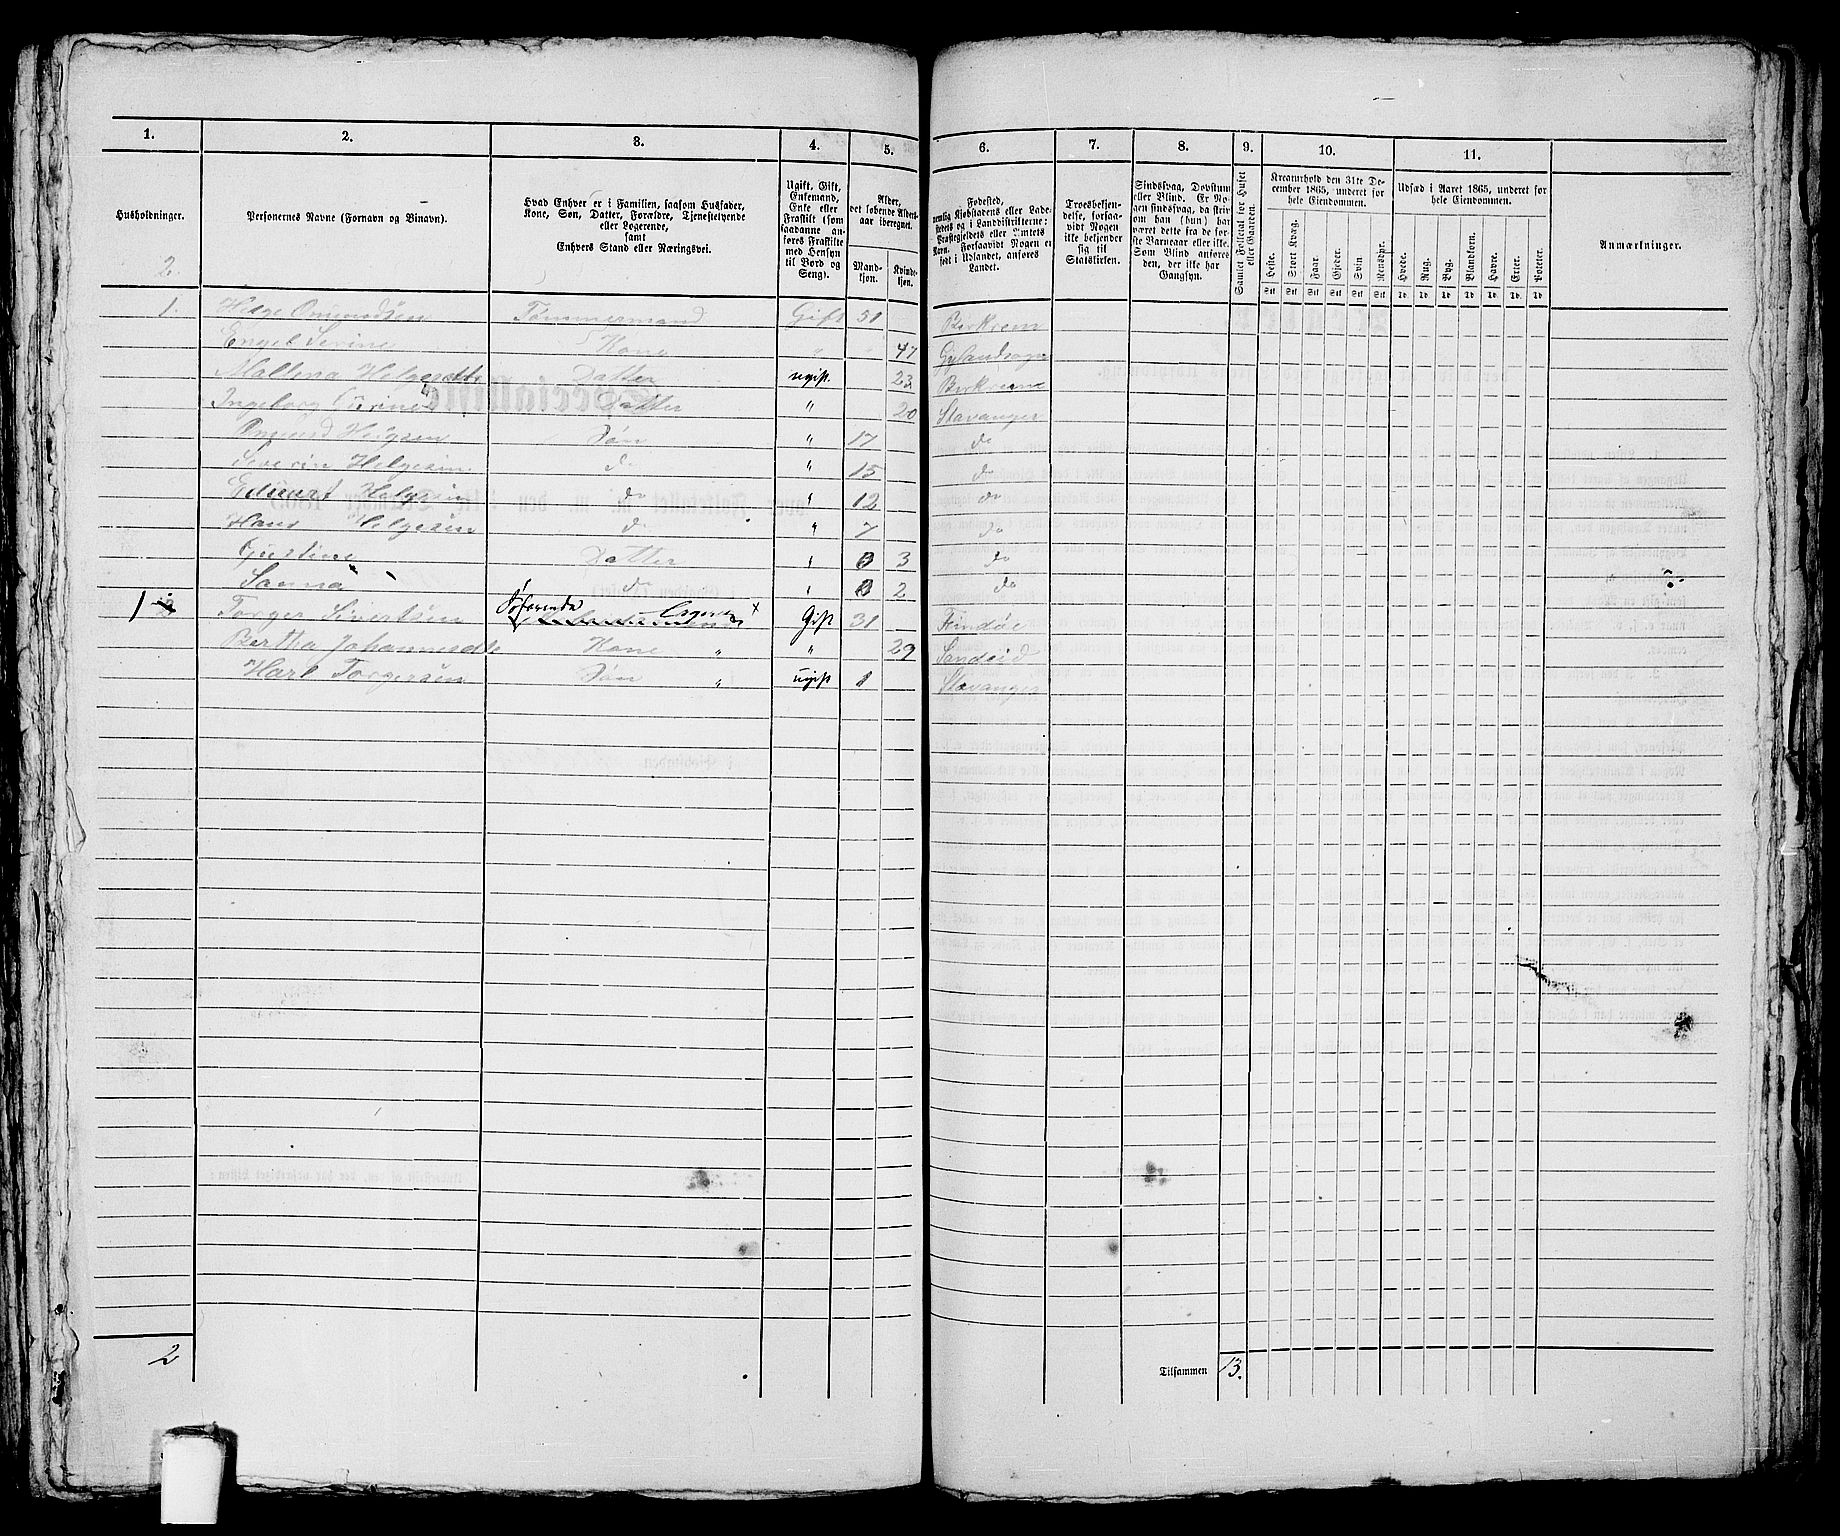 1. 2. 3. 4. 5. 6. 7. 8. 9. 10. 11.
Husholdninger.
Personernes Navne (Fornavn og Binavn).
Hvad Enhver er i Familien, saasom Husfader,
Kone, Søn, Datter, Forældre, Tjenestetyende
eller Logerende,
samt
Enhvers Stand eller Næringsvei.
Ugift, Gift,
Enkemand,
Enke eller
Fraskilt (som
saadanne an-
føres Fraskilte
med Hensyn
til Bord og
Seng).
Alder,
det løbende Alders-
aar iberegnet.
Mand-
kjøn.
Kvinde-
kjøn.
Fødested,
nemlig Kjøbstadens eller Lade-
stedets og i Landdistrikterne:
Præstegjeldets eller Amtets
Navn. Forsaavidt Nogen er
født i Udlandet, anføres
Landet.
Troesbekjen-
delse, forsaa-
vidt Nogen
ikke bekjender
sig til
Statskirken.
Sindssvag, Døvstum
eller Blind. Er No-
gen sindssvag, da skriv
om han (hun) har
været dette fra de før-
ste Barneaar eller ikke.
Som Blind anføres
den, der ikke har
Gangsyn.
Samlet Folketal for Huset
eller Gaarden.
Kreaturhold den 31te De-
cember 1865, underet for
hele Eiendommen.
Heste. Stort Kvæg. Faar. Gjeder. Svin Rensdyr.
Stk Stk Stk Stk Stk Stk
Udsæd i Aaret 1865, underet for
hele Eiendommen.
Hvede. Rug. Byg. Blandkorn. Havre. Erter. Poteter.
Td. Td Td Td Td Td. Td
Anmærkninger.
2.
1. Helge Omundsen Tømmermand Gift 51 Birkrem
Engel Serine Kone " " 47 Gylandsogn
Mallena Helgesdtr Datter ugift. 23 Birkrem
Ingeborg Serine Datter " 20 Stavanger
Omund Helgesen Søn " 17 do
Severin Helgesen do " 15 do
Edvart Helgesen do " 12 do
Hans Helgesen do " 7 do
Gustine Datter " 3 do
Sanna do " 2 do
1 Torger Sivertsen Søfarende Logerende x Gift 31 Findøe
Bertha Johannesdtr Kone " " 29 Sandeid
Karl Torgersen Søn " ugift 1 Stavanger
2 Tilsammen 13.